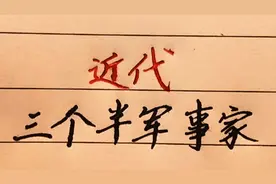 近代
三个半军事家